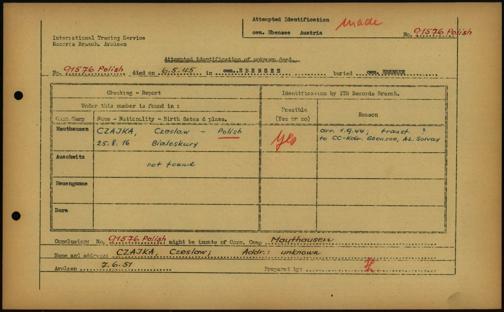 Attempted Identification
made
cem. Ebensee Austria
International Tracing Service
Records Branch, Arolsen
No. 91576 Polish
Attempted identification of unknown dead.
No. 91576 Polish died on 6.5.45 in cem. EBENSEE buried cem. EBENSEE
Checking - Report
Identification by ITS Records Branch.
Under this number is found in :
Possible
(Yes or no)
Reason
Conc. Camp
Name - Nationality - Birth dates & place.
Mauthausen
CZAJKA, Czeslaw - Polish
25.8.16 Bialoskury
Yes
arr. 1.9.44; transf. ?
to CC-Kdo. Ebensee, AL. Solvay
Auschwitz
not found
Neuengamme
Dora
Conclusion: No. 91576 Polish might be inmate of Conc. Camp Mauthausen
Name and address: CZAJKA, Czeslaw; Addr.: unknown
Arolsen 7.6.51 Prepared by: